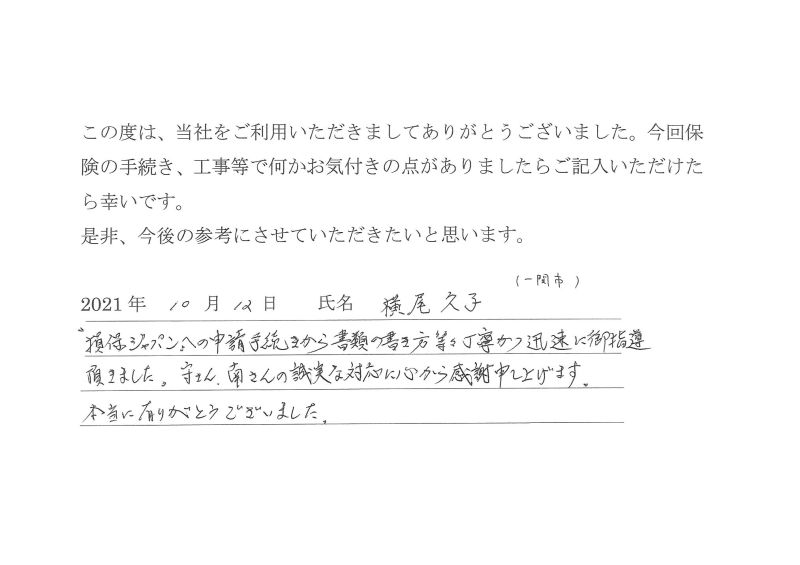 この度は、当社をご利用いただきましてありがとうございました。今回保
険の手続き、工事等で何かお気付きの点がありましたらご記入いただけた
ら幸いです。
是非、今後の参考にさせていただきたいと思います。
(一関市)
2021 年 10 月 12 日 氏名 横尾久子
"損保ジャパン"への申請手続きから書類の書き方等々丁寧かつ迅速に御指導
頂きました。守さん、南さんの誠実な対応に心から感謝申し上げます。
本当に有りがとうございました。